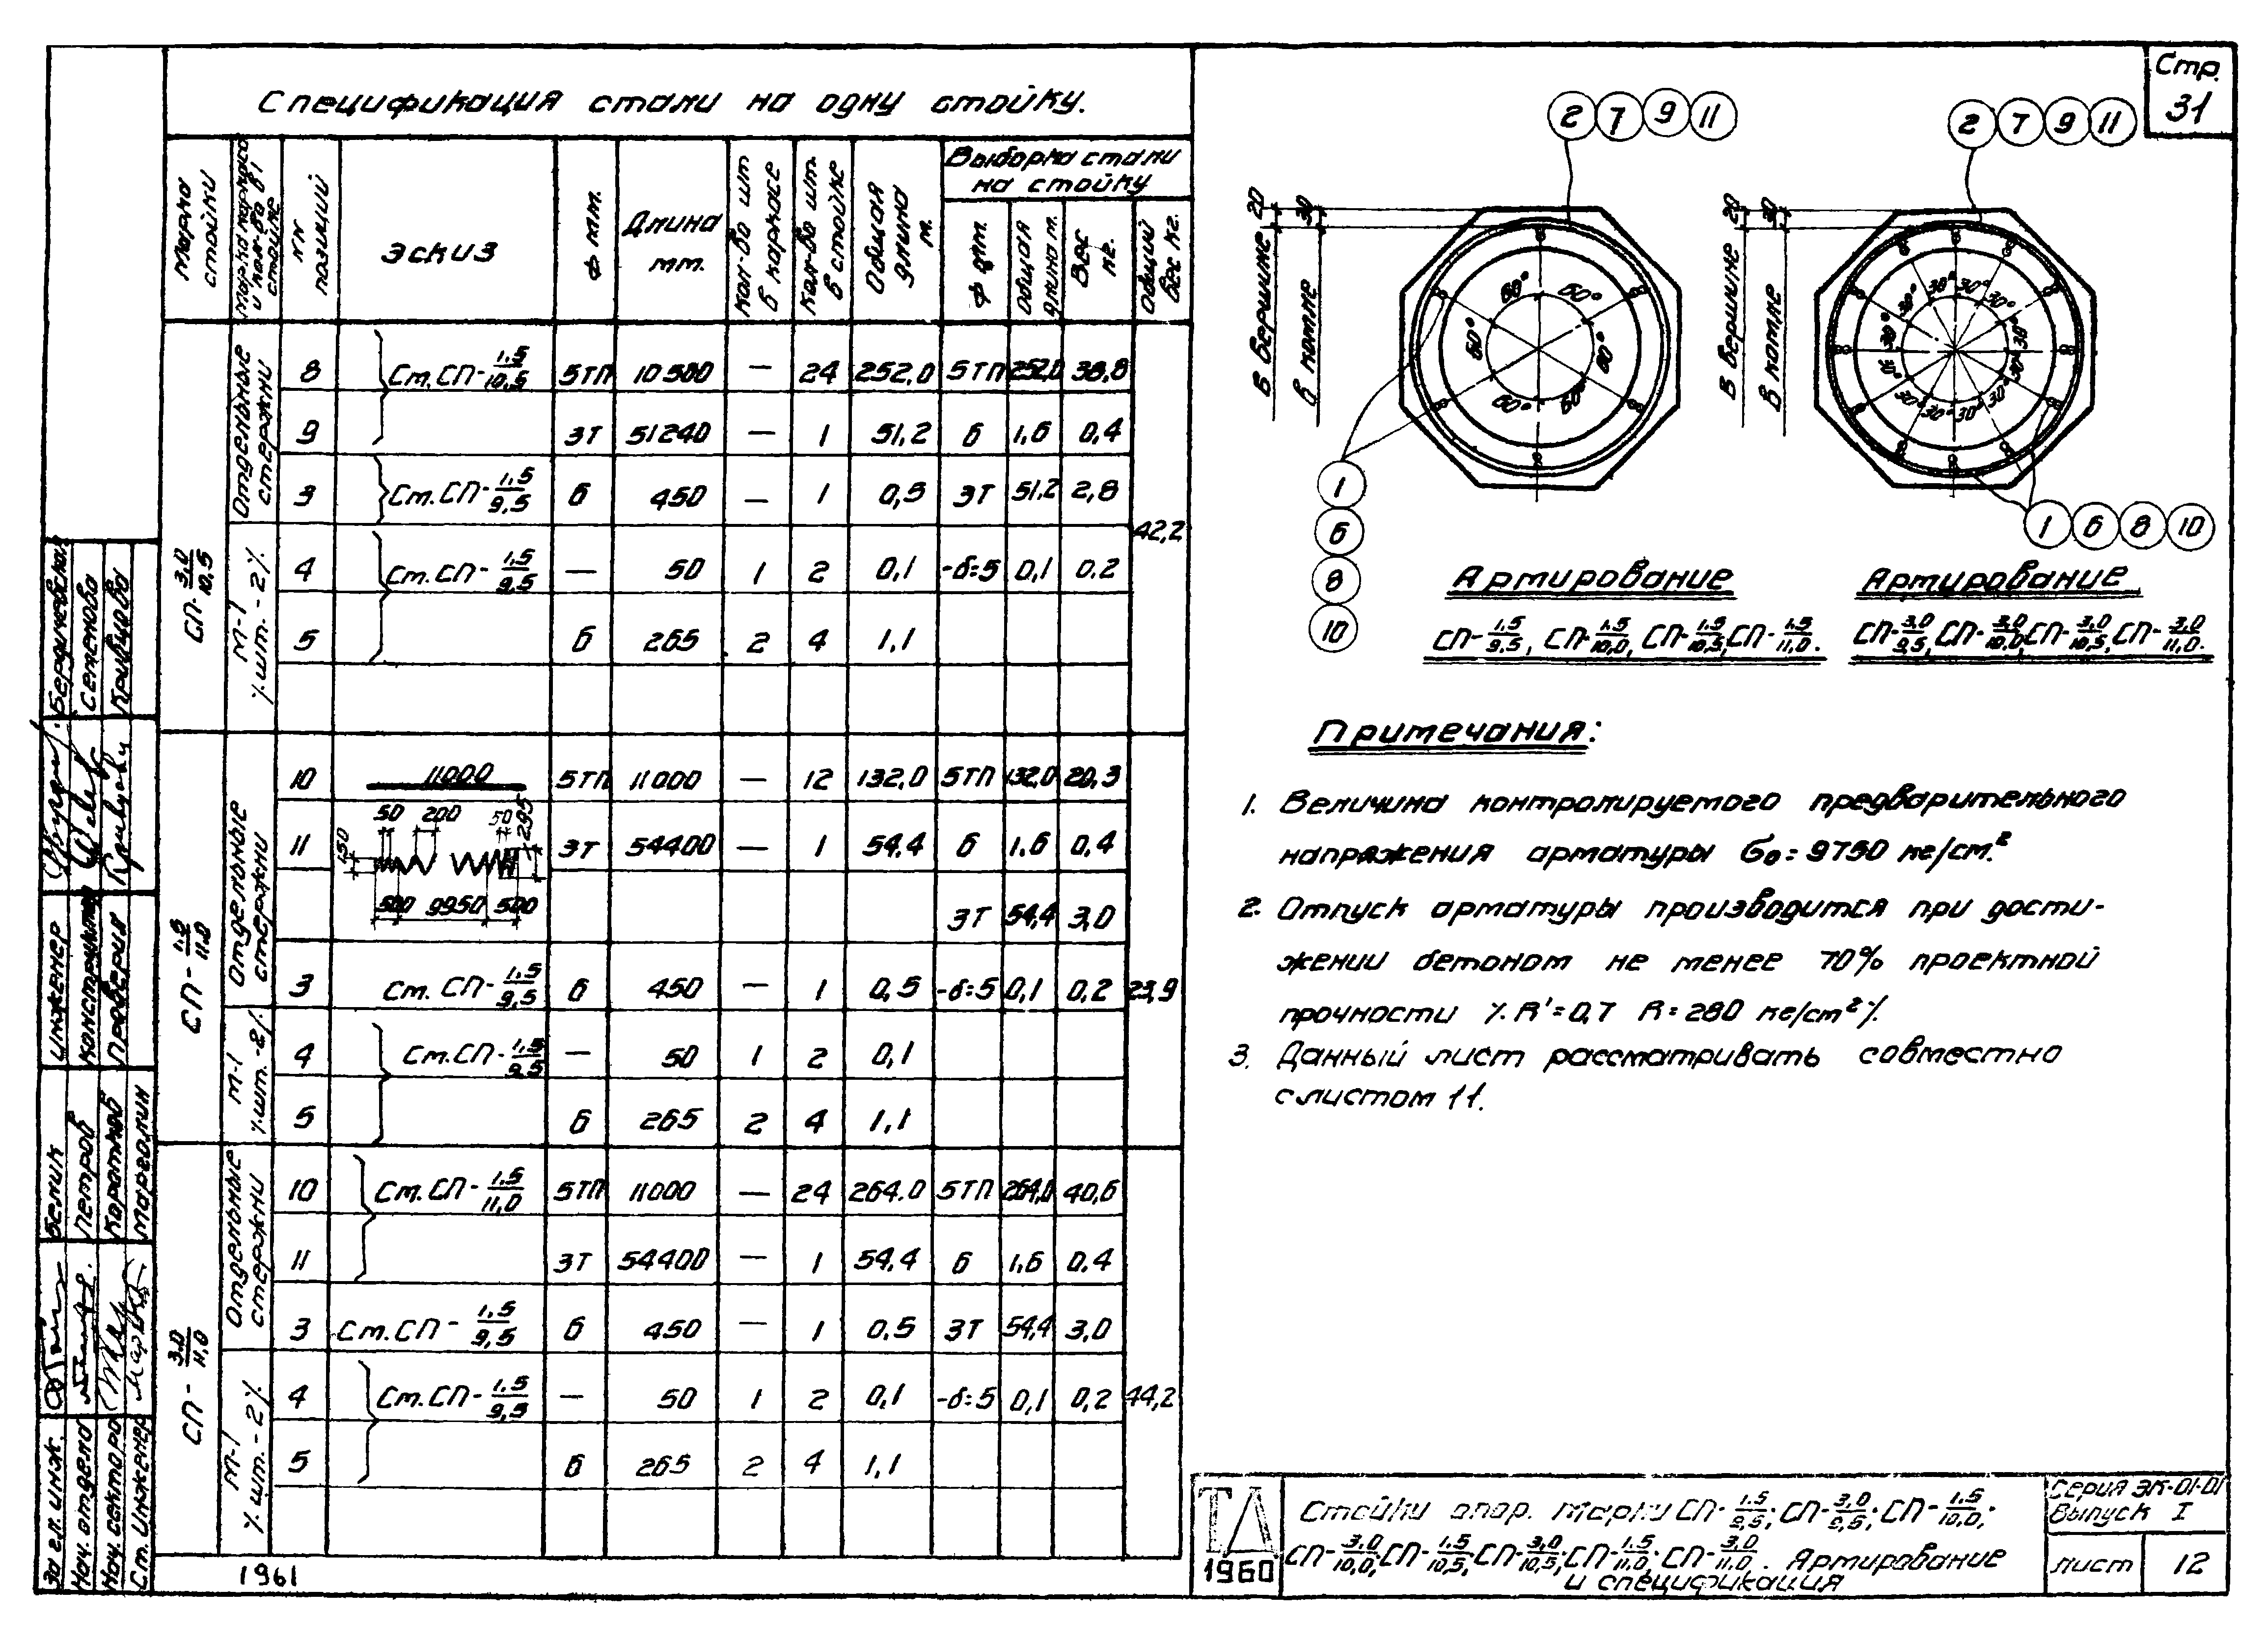 Стр.
31
Спецификация стали на одну стойку.
Марка стойки
Марка каркаса и кол-во в 1 стойке
NN позиций
Эскиз
ф мм.
Длина мм.
Кол-во шт в каркасе
Кол-во шт. в стойке
Общая длина м.
Выборка стали на стойку
ф мм.
Общая длина м.
Вес кг.
Общий вес кг.
СП-3,0/10,5
Отдельные стержни
М-1 /шт.-2/
8 Ст.СП-1,5/10,5 5ТП 10500 — 24 252,0 5ТП 252,0 38,8
9 3Т 51240 — 1 51,2 6 1,6 0,4
3 Ст.СП-1,5/9,5 6 450 — 1 0,5 3Т 51,2 2,8
42,2
4 Ст.СП-1,5/9,5 — 50 1 2 0,1 -δ=5 0,1 0.2
5 6 265 2 4 1,1
СП-1,5/11.0
Отдельные стержни
М-1 /шт.-2/
10 11000 5ТП 11000 — 12 132,0 5ТП 132,0 20,3
50 200 50 295
150
11 3Т 54400 — 1 54,4 6 1,6 0,4
500 9950 500
3Т 54,4 3,0
3 Ст. СП-1,5/9,5 6 450 — 1 0,5 -δ=5 0,1 0,2 23,9
4 Ст.СП-1,5/9,5 — 50 1 2 0,1
5 6 265 2 4 1,1
СП-3,0/11,0
Отдельные стержни
М-1 /шт.-2/
10 Ст.СП-1,5/11,0 5ТП 11000 — 24 264.0 5ТП 264,0 40,6
11 3Т 54400 — 1 54,4 6 1,6 0,4
3 Ст.СП-1,5/9,5 6 450 — 1 0,5 3Т 54,4 3,0
4 Ст.СП-1,5/9,5 — 50 1 2 0,1 -δ=5 0,1 0,2 44,2
5 6 265 2 4 1,1
1961
2 7 9 11
20 30
В вершине
В комле
60° 60° 60° 60° 60° 60°
1
6
8
10
Армирование
СП-1,5/9,5, СП-1,5/10,0, СП-1,5/10,5, СП-1,5/11,0.
2 7 9 11
20 30
В вершине
В комле
30° 30° 30° 30° 30° 30° 30° 30° 30° 30° 30° 30°
1 6 8 10
Армирование
СП-3,0/9,5, СП-3,0/10,0, СП-3,0/10,5, СП-3,0/11,0.
Примечания:
1. Величина контролируемого предварительного
напряжения арматуры бо=9750 кг/см.²
2. Отпуск арматуры производится при дости-
жении бетоном не менее 70% проектной
прочности /.R'=0,7 R=280 кг/см²/.
3. Данный лист рассматривать совместно
с листом 11.
ТД
1960
Стойки опор. Марки СП-1,5/9,5; СП-3,0/9,5; СП-1,5/10,0;
СП-3,0/10,0; СП-1,5/10,5; СП-3,0/10,5; СП-1,5/11,0; СП-3,0/11,0. Армирование
и спецификация
Серия ЭК-01-01
Выпуск I
Лист 12
Бердичевская
Семенова
Кривцова
Инженер
Конструктор
Проверил
Белик
Петров
Коротков
Марголин
За гл. инж.
Нач. отдела
Нач. сектора
Ст. инженер